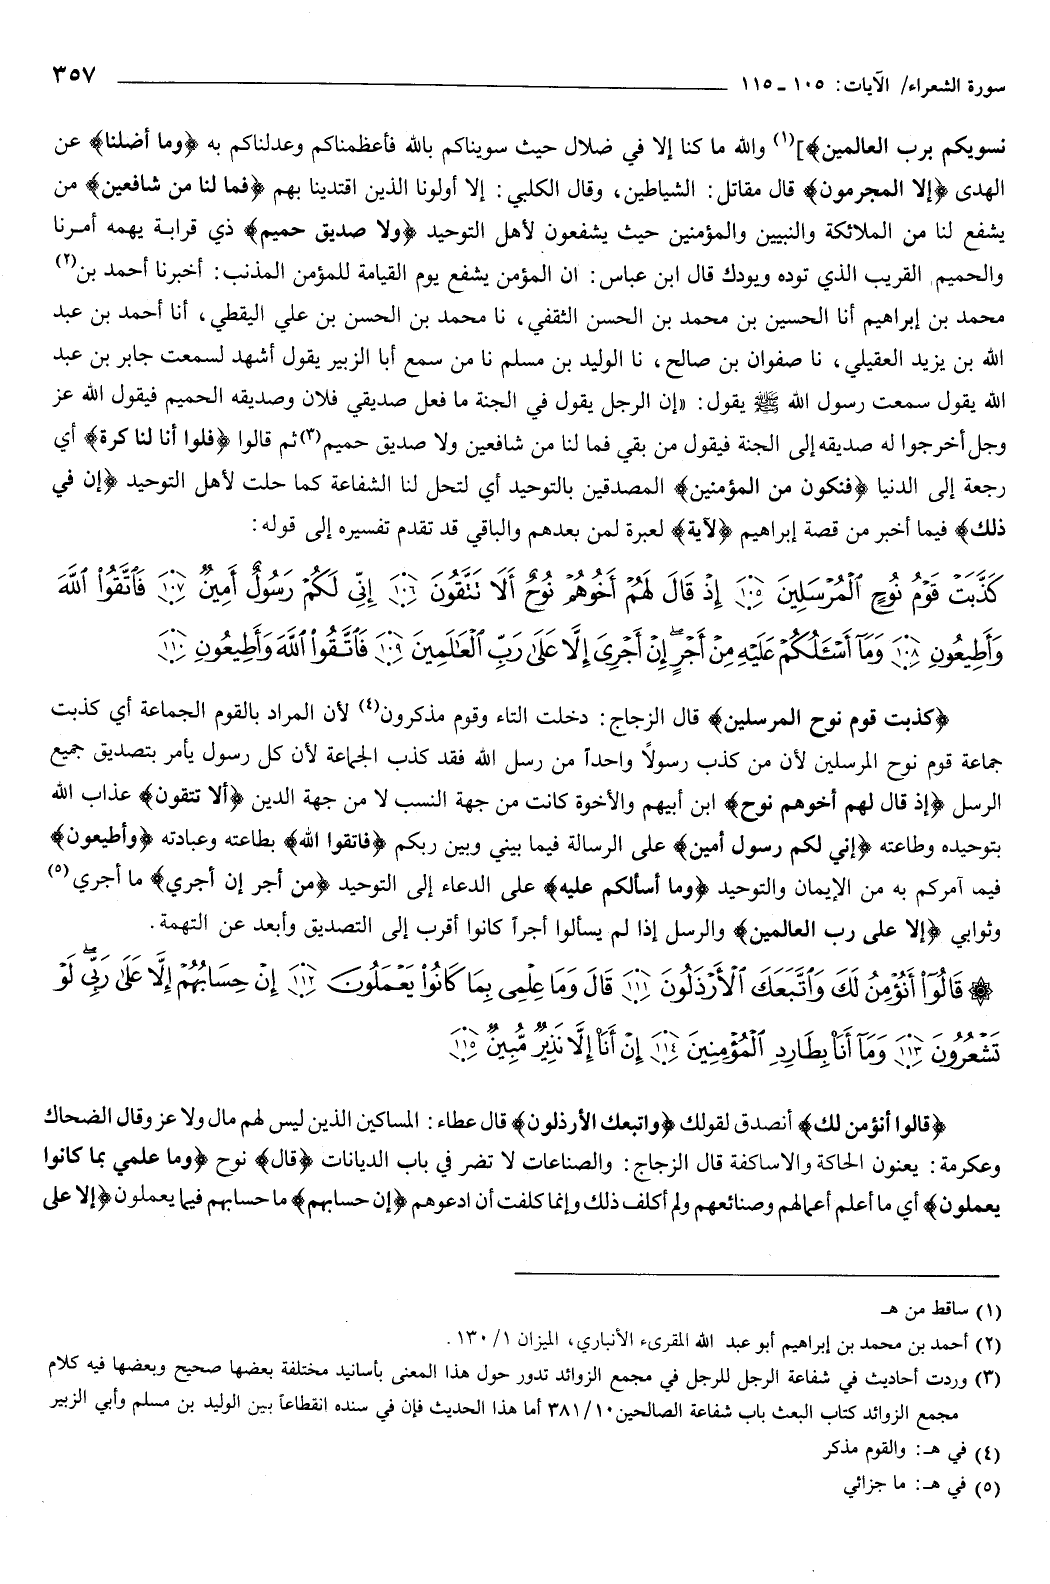 سورة الشعراء/ الآيات: ١٠٥ ـ ١١٥ ٣٥٧
نسويكم برب العالمين﴾](١) والله ما كنا إلا في ضلال حيث سويناكم بالله فأعظمناكم وعدلناكم به ﴿وما أضلنا﴾ عن
الهدى ﴿إلا المجرمون﴾ قال مقاتل: الشياطين، وقال الكلبي: إلا أولونا الذين اقتدينا بهم ﴿فما لنا من شافعين﴾ من
يشفع لنا من الملائكة والنبيين والمؤمنين حيث يشفعون لأهل التوحيد ﴿ولا صديق حميم﴾ ذي قرابة يهمه أمرنا
والحميم القريب الذي توده ويودك قال ابن عباس: ان المؤمن يشفع يوم القيامة للمؤمن المذنب: أخبرنا أحمد بن(٢)
محمد بن إبراهيم أنا الحسين بن محمد بن الحسن الثقفي، نا محمد بن الحسن بن علي اليقطي، أنا أحمد بن عبد
الله بن يزيد العقيلي، نا صفوان بن صالح، نا الوليد بن مسلم نا من سمع أبا الزبير يقول أشهد لسمعت جابر بن عبد
الله يقول سمعت رسول الله ﷺ يقول: «إن الرجل يقول في الجنة ما فعل صديقي فلان وصديقه الحميم فيقول الله عز
وجل أخرجوا له صديقه إلى الجنة فيقول من بقي فما لنا من شافعين ولا صديق حميم(٣) ثم قالوا ﴿فلوا أنا لنا كرة﴾ أي
رجعة إلى الدنيا ﴿فنكون من المؤمنين﴾ المصدقين بالتوحيد أي لتحل لنا الشفاعة كما حلت لأهل التوحيد ﴿إن في
ذلك﴾ فيما أخبر من قصة إبراهيم ﴿لآية﴾ لعبرة لمن بعدهم والباقي قد تقدم تفسيره إلى قوله:
كَذَّبَتْ قَوْمُ نُوحٍ ٱلْمُرْسَلِينَ ١٠٥ إِذْ قَالَ لَهُمْ أَخُوهُمْ نُوحٌ أَلَا تَتَّقُونَ ١٠٦ إِنِّي لَكُمْ رَسُولٌ أَمِينٌ ١٠٧ فَٱتَّقُوا۟ ٱللَّهَ
وَأَطِيعُونِ ١٠٨ وَمَآ أَسْـَٔلُكُمْ عَلَيْهِ مِنْ أَجْرٍ ۖ إِنْ أَجْرِىَ إِلَّا عَلَىٰ رَبِّ ٱلْعَـٰلَمِينَ ١٠٩ فَٱتَّقُوا۟ ٱللَّهَ وَأَطِيعُونِ ١١٠
﴿كذبت قوم نوح المرسلين﴾ قال الزجاج: دخلت التاء وقوم مذكرون(٤) لأن المراد بالقوم الجماعة أي كذبت
جماعة قوم نوح المرسلين لأن من كذب رسولاً واحداً من رسل الله فقد كذب الجماعة لأن كل رسول يأمر بتصديق جميع
الرسل ﴿إذ قال لهم أخوهم نوح﴾ ابن أبيهم والأخوة كانت من جهة النسب لا من جهة الدين ﴿ألا تتقون﴾ عذاب الله
بتوحيده وطاعته ﴿إني لكم رسول أمين﴾ على الرسالة فيما بيني وبين ربكم ﴿فاتقوا الله﴾ بطاعته وعبادته ﴿وأطيعون﴾
فيما آمركم به من الإيمان والتوحيد ﴿وما أسألكم عليه﴾ على الدعاء إلى التوحيد ﴿من أجر إن أجري﴾ ما أجري(٥)
وثوابي ﴿إلا على رب العالمين﴾ والرسل إذا لم يسألوا أجراً كانوا أقرب إلى التصديق وأبعد عن التهمة.
۞ قَالُوٓا۟ أَنُؤْمِنُ لَكَ وَٱتَّبَعَكَ ٱلْأَرْذَلُونَ ١١١ قَالَ وَمَا عِلْمِى بِمَا كَانُوا۟ يَعْمَلُونَ ١١٢ إِنْ حِسَابُهُمْ إِلَّا عَلَىٰ رَبِّى ۖ لَوْ
تَشْعُرُونَ ١١٣ وَمَآ أَنَا۠ بِطَارِدِ ٱلْمُؤْمِنِينَ ١١٤ إِنْ أَنَا۠ إِلَّا نَذِيرٌ مُّبِينٌ ١١٥
﴿قالوا أنؤمن لك﴾ أنصدق لقولك ﴿واتبعك الأرذلون﴾ قال عطاء: المساكين الذين ليس لهم مال ولا عز وقال الضحاك
وعكرمة: يعنون الحاكة والاساكفة قال الزجاج: والصناعات لا تضر في باب الديانات ﴿قال﴾ نوح ﴿وما علمي بما كانوا
يعملون﴾ أي ما أعلم أعمالهم وصنائعهم ولم أكلف ذلك وإنما كلفت أن ادعوهم ﴿إن حسابهم﴾ ما حسابهم فيما يعملون ﴿إلا على
(١) ساقط من هـ
(٢) أحمد بن محمد بن إبراهيم أبو عبد الله المقرىء الأنباري، الميزان ١/ ١٣٠.
(٣) وردت أحاديث في شفاعة الرجل للرجل في مجمع الزوائد تدور حول هذا المعنى بأسانيد مختلفة بعضها صحيح وبعضها فيه كلام
مجمع الزوائد كتاب البعث باب شفاعة الصالحين ١٠/ ٣٨١ أما هذا الحديث فإن في سنده انقطاعاً بين الوليد بن مسلم وأبي الزبير
(٤) في هـ: والقوم مذكر
(٥) في هـ: ما جزائي